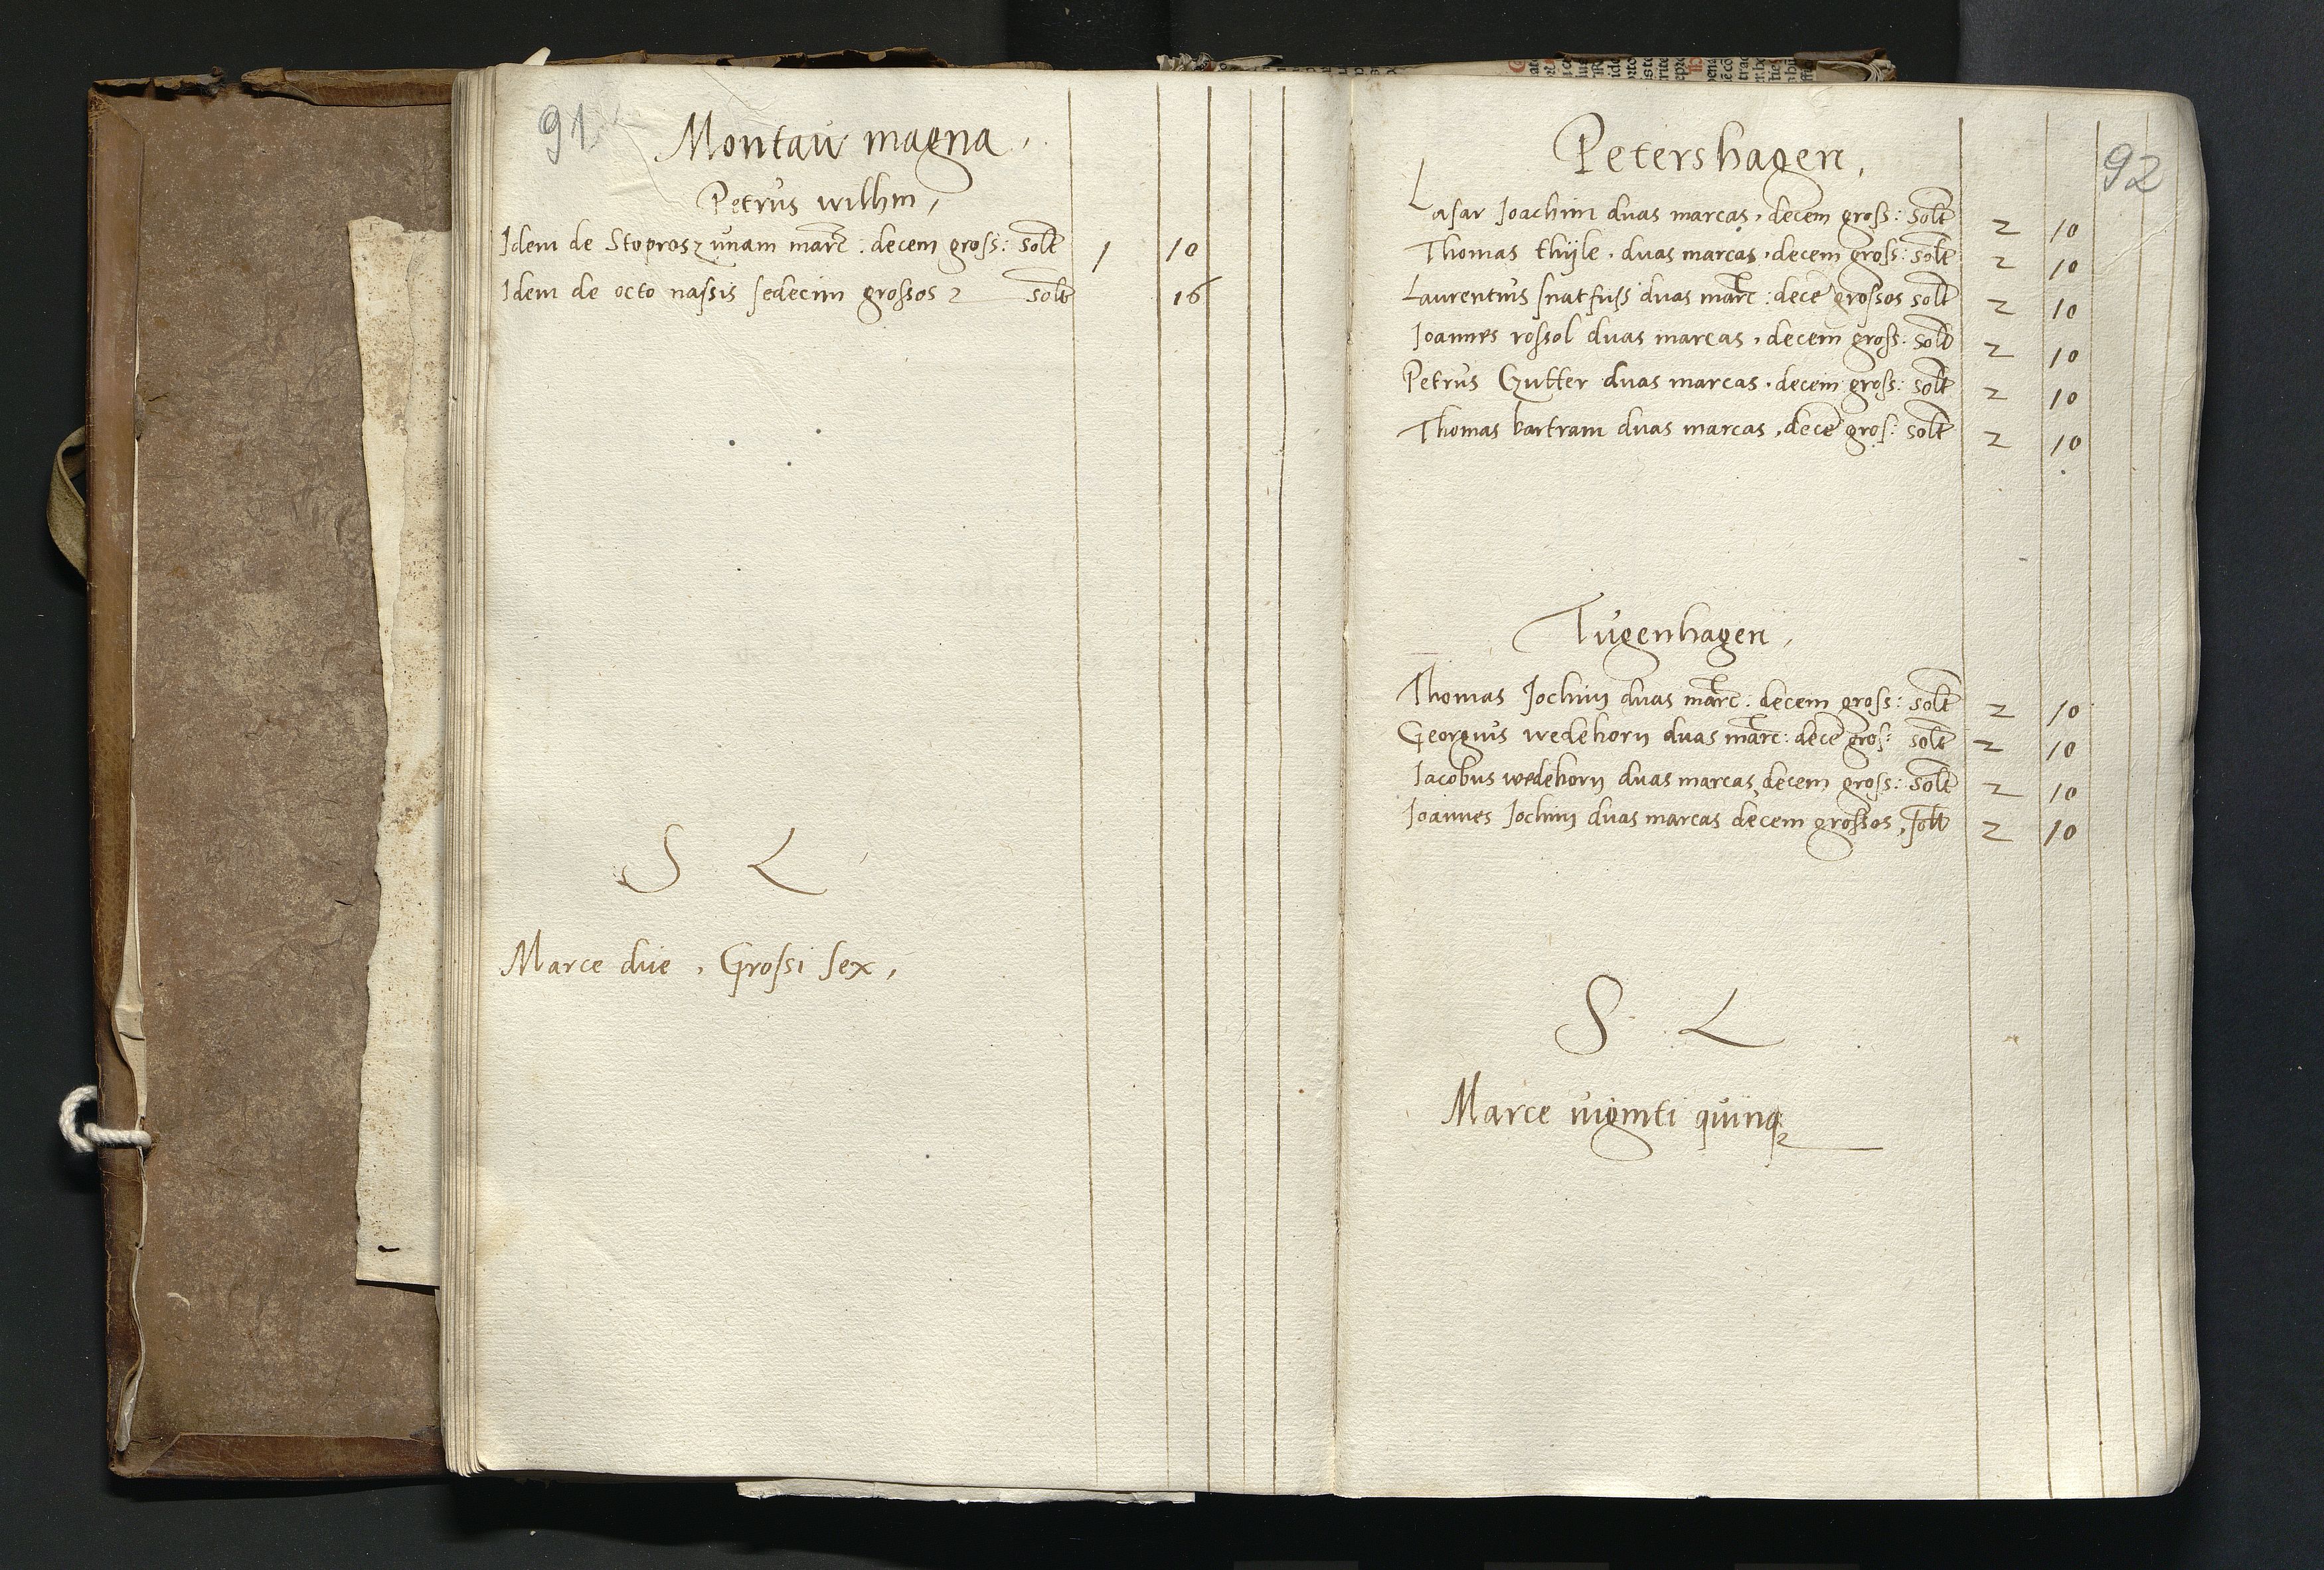 91
Montau magna,
Petrus wilhm,
Idem de Stoprosz unam marc: decem gross: solt 1 10
Idem de octo nassis sedecim grossos solt 16
S L
Marce due, Grossi sex,
92
Petershagen,
Lasar Joachim duas marcas, decem gross: solt 2 10
Thomas thijle, duas marcas, decem gross: solt 2 10
Laurentius snatfuss duas marc: dece grossos solt 2 10
Joannes rossol duas marcas, decem gross: solt 2 10
Petrus Gutter duas marcas, decem gross: solt 2 10
Thomas bartram duas marcas, dece gros: solt 2 10
Tugenhagen,
Thomas Jochim duas marc: decem gross: solt 2 10
Georgius wedehorn duas marc: dece gros: solt 2 10
Jacobus wedehorn duas marcas, decem gross: solt 2 10
Joannes Jochim duas marcas decem grossos, solt 2 10
S L
Marce viginti quinq